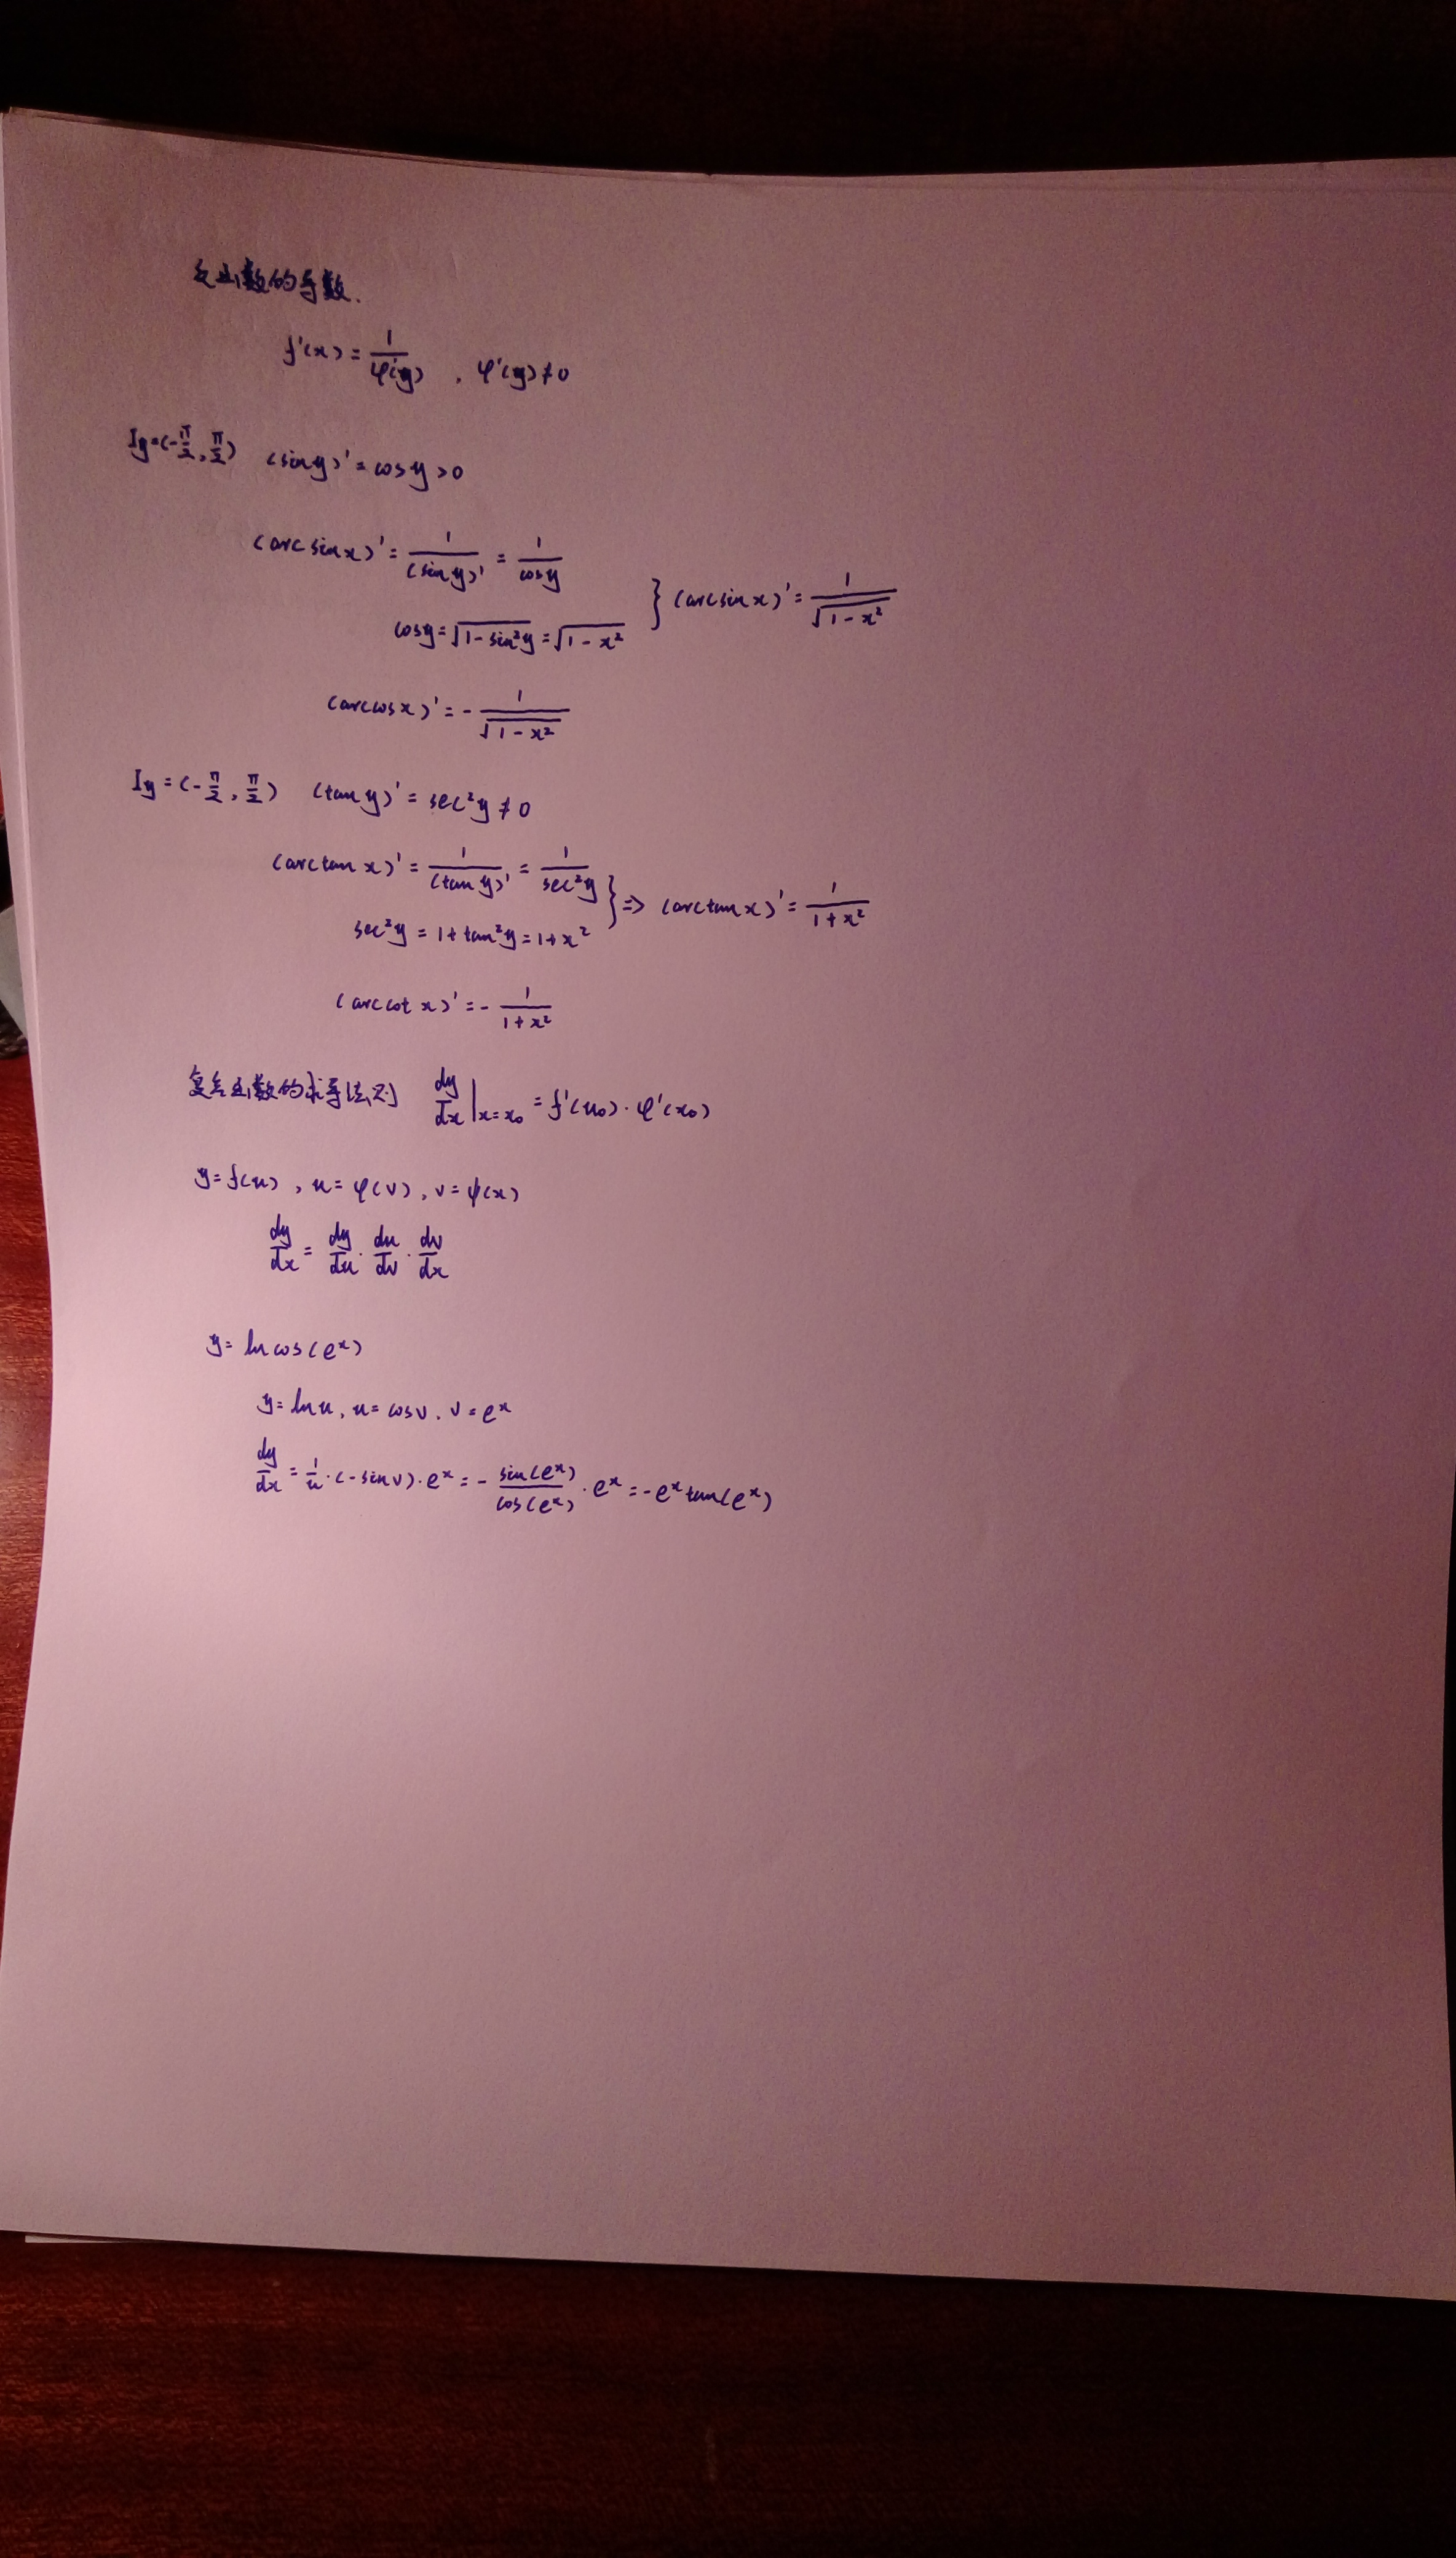 反函数的导数.
f'(x) = 1/φ'(y) , φ'(y) ≠ 0
Iy = (-π/2, π/2) (sin y)' = cos y > 0
(arcsin x)' = 1/(sin y)' = 1/cos y
cos y = √(1 - sin²y) = √(1 - x²) } (arcsin x)' = 1/√(1 - x²)
(arccos x)' = - 1/√(1 - x²)
Iy = (-π/2, π/2) (tan y)' = sec²y ≠ 0
(arctan x)' = 1/(tan y)' = 1/sec²y
sec²y = 1 + tan²y = 1 + x² } ⇒ (arctan x)' = 1/(1 + x²)
(arccot x)' = - 1/(1 + x²)
复合函数的求导法则 dy/dx |x=x₀ = f'(u₀) · φ'(x₀)
y = f(u) , u = φ(v) , v = ψ(x)
dy/dx = dy/du · du/dv · dv/dx
y = ln cos(eˣ)
y = ln u, u = cos v, v = eˣ
dy/dx = 1/u · (-sin v) · eˣ = - sin(eˣ)/cos(eˣ) · eˣ = -eˣ tan(eˣ)